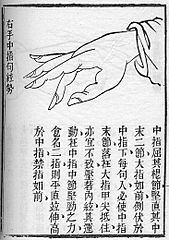 右手中指句經勢
中指屈其根節堅直其中
末二節大指如前側伏於
中指下每句入必使中指
末節落在大指甲尖抵住
亦宜不致堅若內絃其運
動在中指中節堅勁之力
食名二指則平直竚伸高
於中指禁指如前